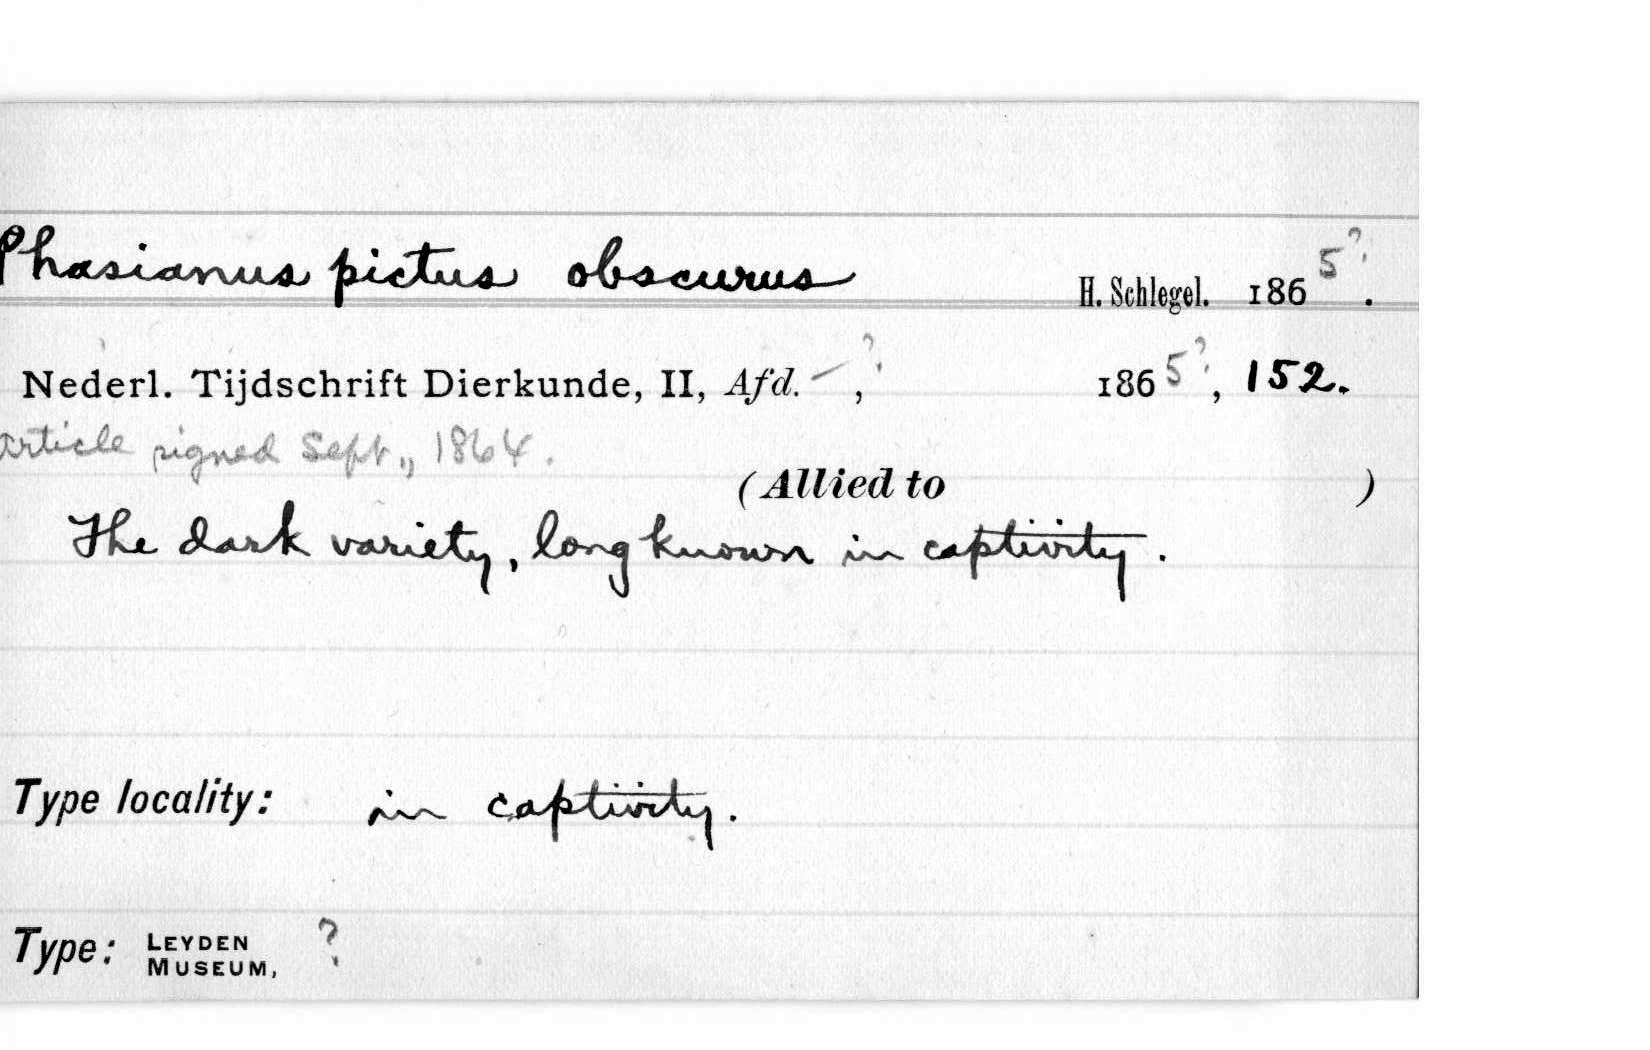 Phasianus pictus obscurus H. Schlegel. 1865?.
Nederl. Tijdschrift Dierkunde, II, Afd. — ?, 1865?, 152.
Article signed Sept., 1864.
(Allied to )
The dark variety, long known in captivity.
Type locality: in captivity.
Type: LEYDEN MUSEUM, ?